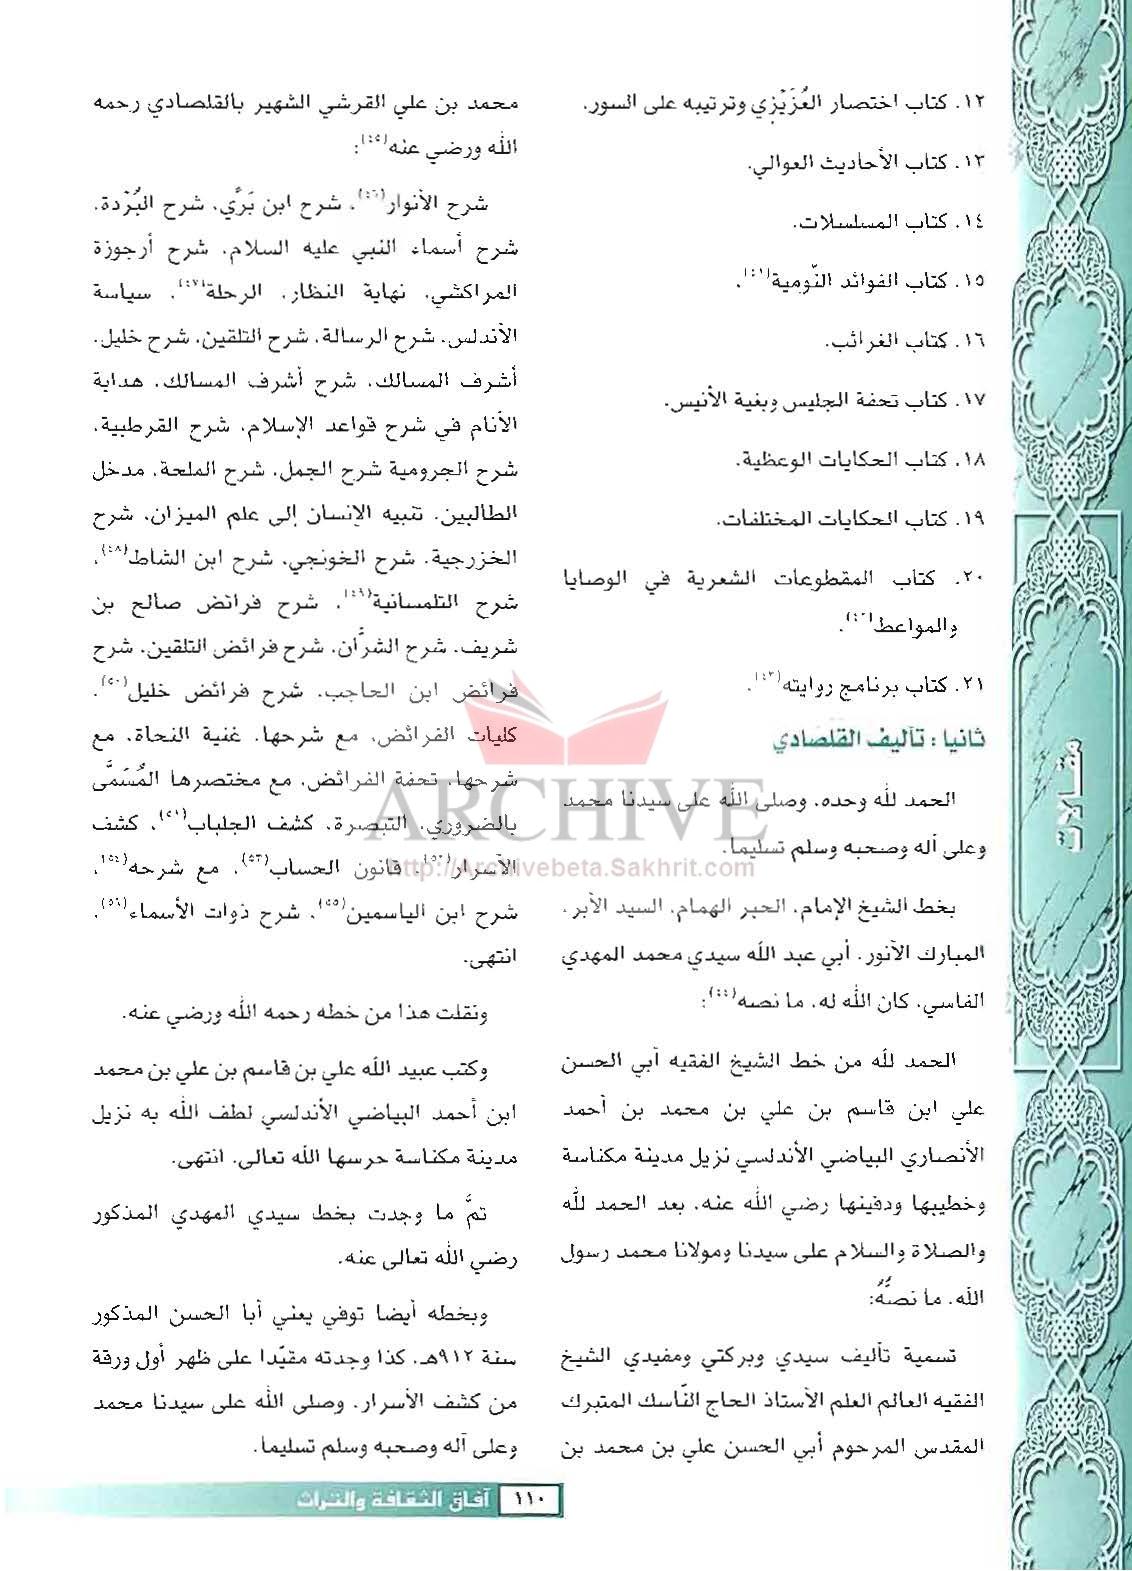 ١٢. كتاب اختصار العُزَيْزي وترتيبه على السور.
١٣. كتاب الأحاديث العوالي.
١٤. كتاب المسلسلات.
١٥. كتاب الفوائد النّومية(٤١).
١٦. كتاب الغرائب.
١٧. كتاب تحفة الجليس وبغية الأنيس.
١٨. كتاب الحكايات الوعظية.
١٩. كتاب الحكايات المختلفات.
٢٠. كتاب المقطوعات الشعرية في الوصايا
والمواعظ(٤٢).
٢١. كتاب برنامج روايته(٤٣).
ثانيا: تآليف القلصادي
الحمد لله وحده، وصلى الله على سيدنا محمد
وعلى آله وصحبه وسلم تسليما.
بخط الشيخ الإمام، الحبر الهمام، السيد الأبر،
المبارك الأنور، أبي عبد الله سيدي محمد المهدي
الفاسي، كان الله له، ما نصه(٤٤):
الحمد لله من خط الشيخ الفقيه أبي الحسن
علي ابن قاسم بن علي بن محمد بن أحمد
الأنصاري البياضي الأندلسي نزيل مدينة مكناسة
وخطيبها ودفينها رضي الله عنه، بعد الحمد لله
والصلاة والسلام على سيدنا ومولانا محمد رسول
الله، ما نصُّهُ:
تسمية تآليف سيدي وبركتي ومفيدي الشيخ
الفقيه العالم العلم الأستاذ الحاج النّاسك المتبرك
المقدس المرحوم أبي الحسن علي بن محمد بن
محمد بن علي القرشي الشهير بالقلصادي رحمه
الله ورضي عنه(٤٥):
شرح الأنوار(٤٦)، شرح ابن بَرِّي، شرح البُرْدة،
شرح أسماء النبي عليه السلام، شرح أرجوزة
المراكشي، نهاية النظار، الرحلة(٤٧)، سياسة
الأندلس، شرح الرسالة، شرح التلقين، شرح خليل،
أشرف المسالك، شرح أشرف المسالك، هداية
الأنام في شرح قواعد الإسلام، شرح القرطبية،
شرح الجرومية شرح الجمل، شرح الملحة، مدخل
الطالبين، تنبيه الإنسان إلى علم الميزان، شرح
الخزرجية، شرح الخونجي، شرح ابن الشاط(٤٨)،
شرح التلمسانية(٤٩)، شرح فرائض صالح بن
شريف، شرح الشرَّان، شرح فرائض التلقين، شرح
فرائض ابن الحاجب، شرح فرائض خليل(٥٠)،
كليات الفرائض، مع شرحها، غنية النحاة، مع
شرحها، تحفة الفرائض، مع مختصرها المُسَمَّى
بالضروري، التبصرة، كشف الجلباب(٥١)، كشف
الأسرار(٥٢)، قانون الحساب(٥٣)، مع شرحه(٥٤)،
شرح ابن الياسمين(٥٥)، شرح ذوات الأسماء(٥٦)،
انتهى.
ونقلت هذا من خطه رحمه الله ورضي عنه.
وكتب عبيد الله علي بن قاسم بن علي بن محمد
ابن أحمد البياضي الأندلسي لطف الله به نزيل
مدينة مكناسة حرسها الله تعالى، انتهى.
تمَّ ما وجدت بخط سيدي المهدي المذكور
رضي الله تعالى عنه.
وبخطه أيضا توفي يعني أبا الحسن المذكور
سنة ٩١٢هـ، كذا وجدته مقيّدا على ظهر أول ورقة
من كشف الأسرار، وصلى الله على سيدنا محمد
وعلى آله وصحبه وسلم تسليما.
مقالات
ARCHIVE
http://Archivebeta.Sakhrit.com
١١٠ آفاق الثقافة والتراث